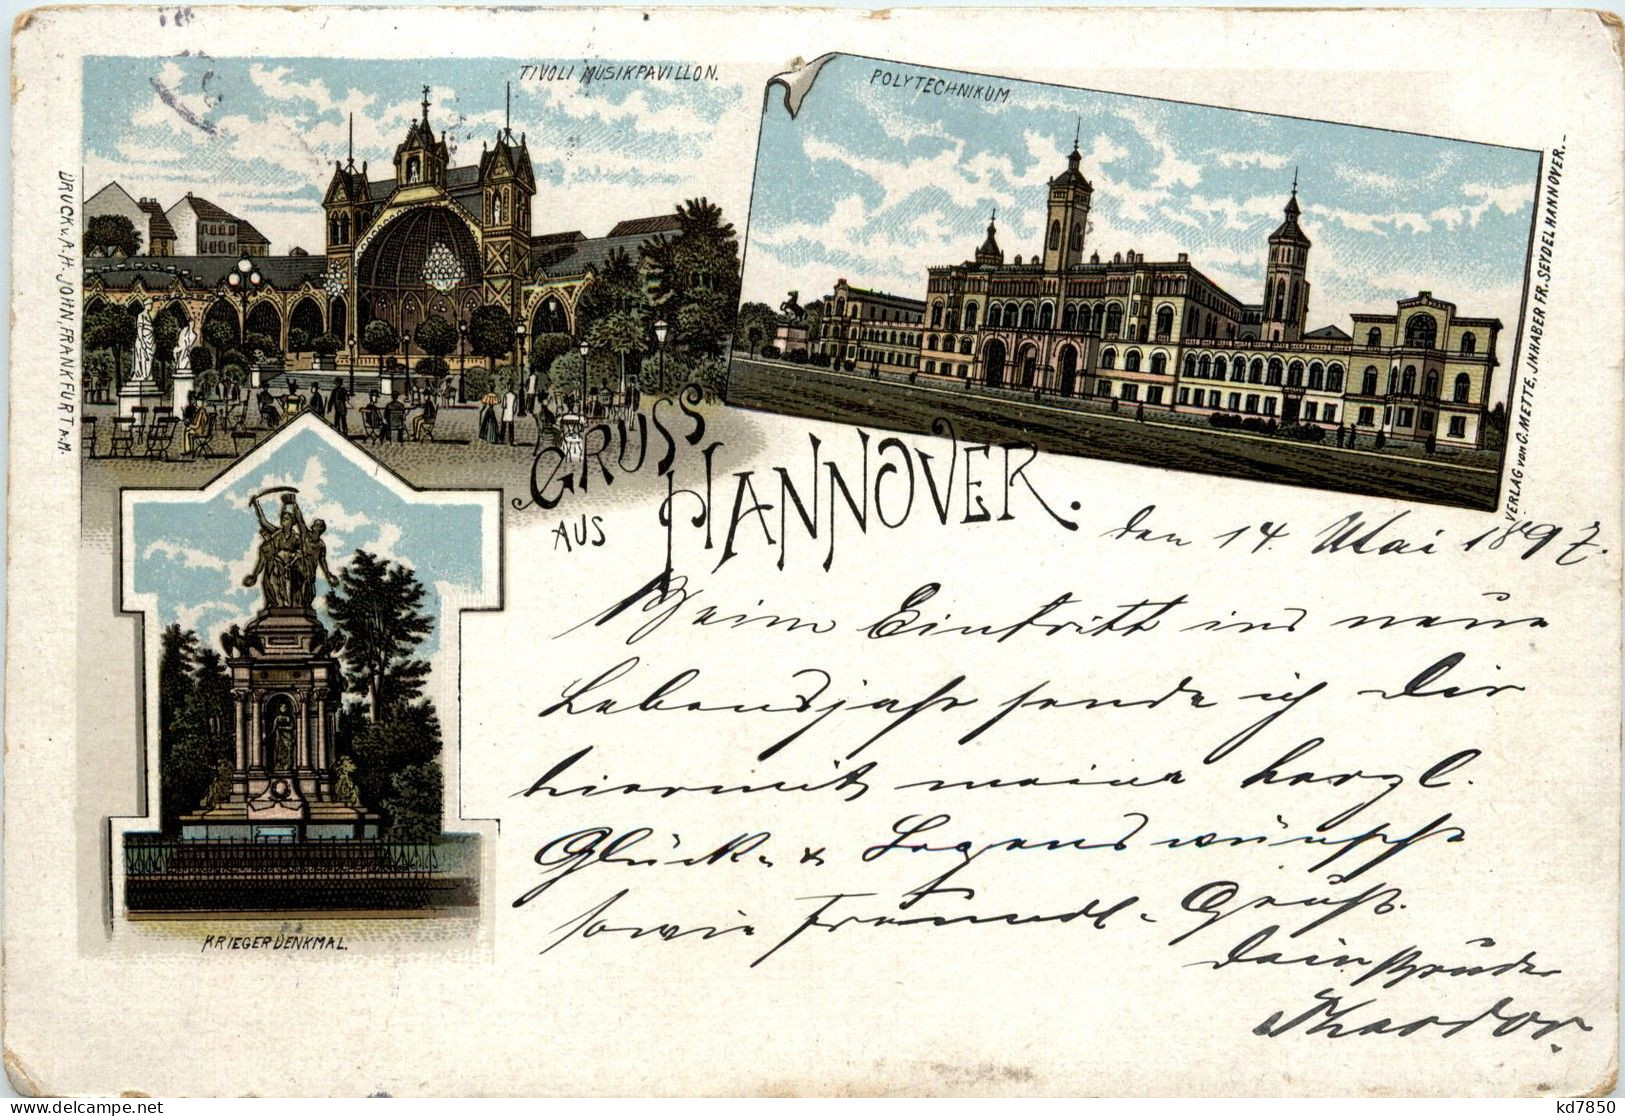 TIVOLI MUSIKPAVILLON.
POLYTECHNIKUM
DRUCK v. A. H. JOHN, FRANKFURT A-M.
VERLAG von C. METTE, JNHABER FR. SEYDEL HANNOVER.-
GRUSS
AUS HANNOVER.
KRIEGERDENKMAL.
den 14. Mai 1897.
Beim Eintritt ins neue
Lebensjahr sende ich Dir
hiermit meine herzl.
Glück- & Segenswünsche
sowie freundl. Grüße.
Dein Bruder
Theodor.
kd7850